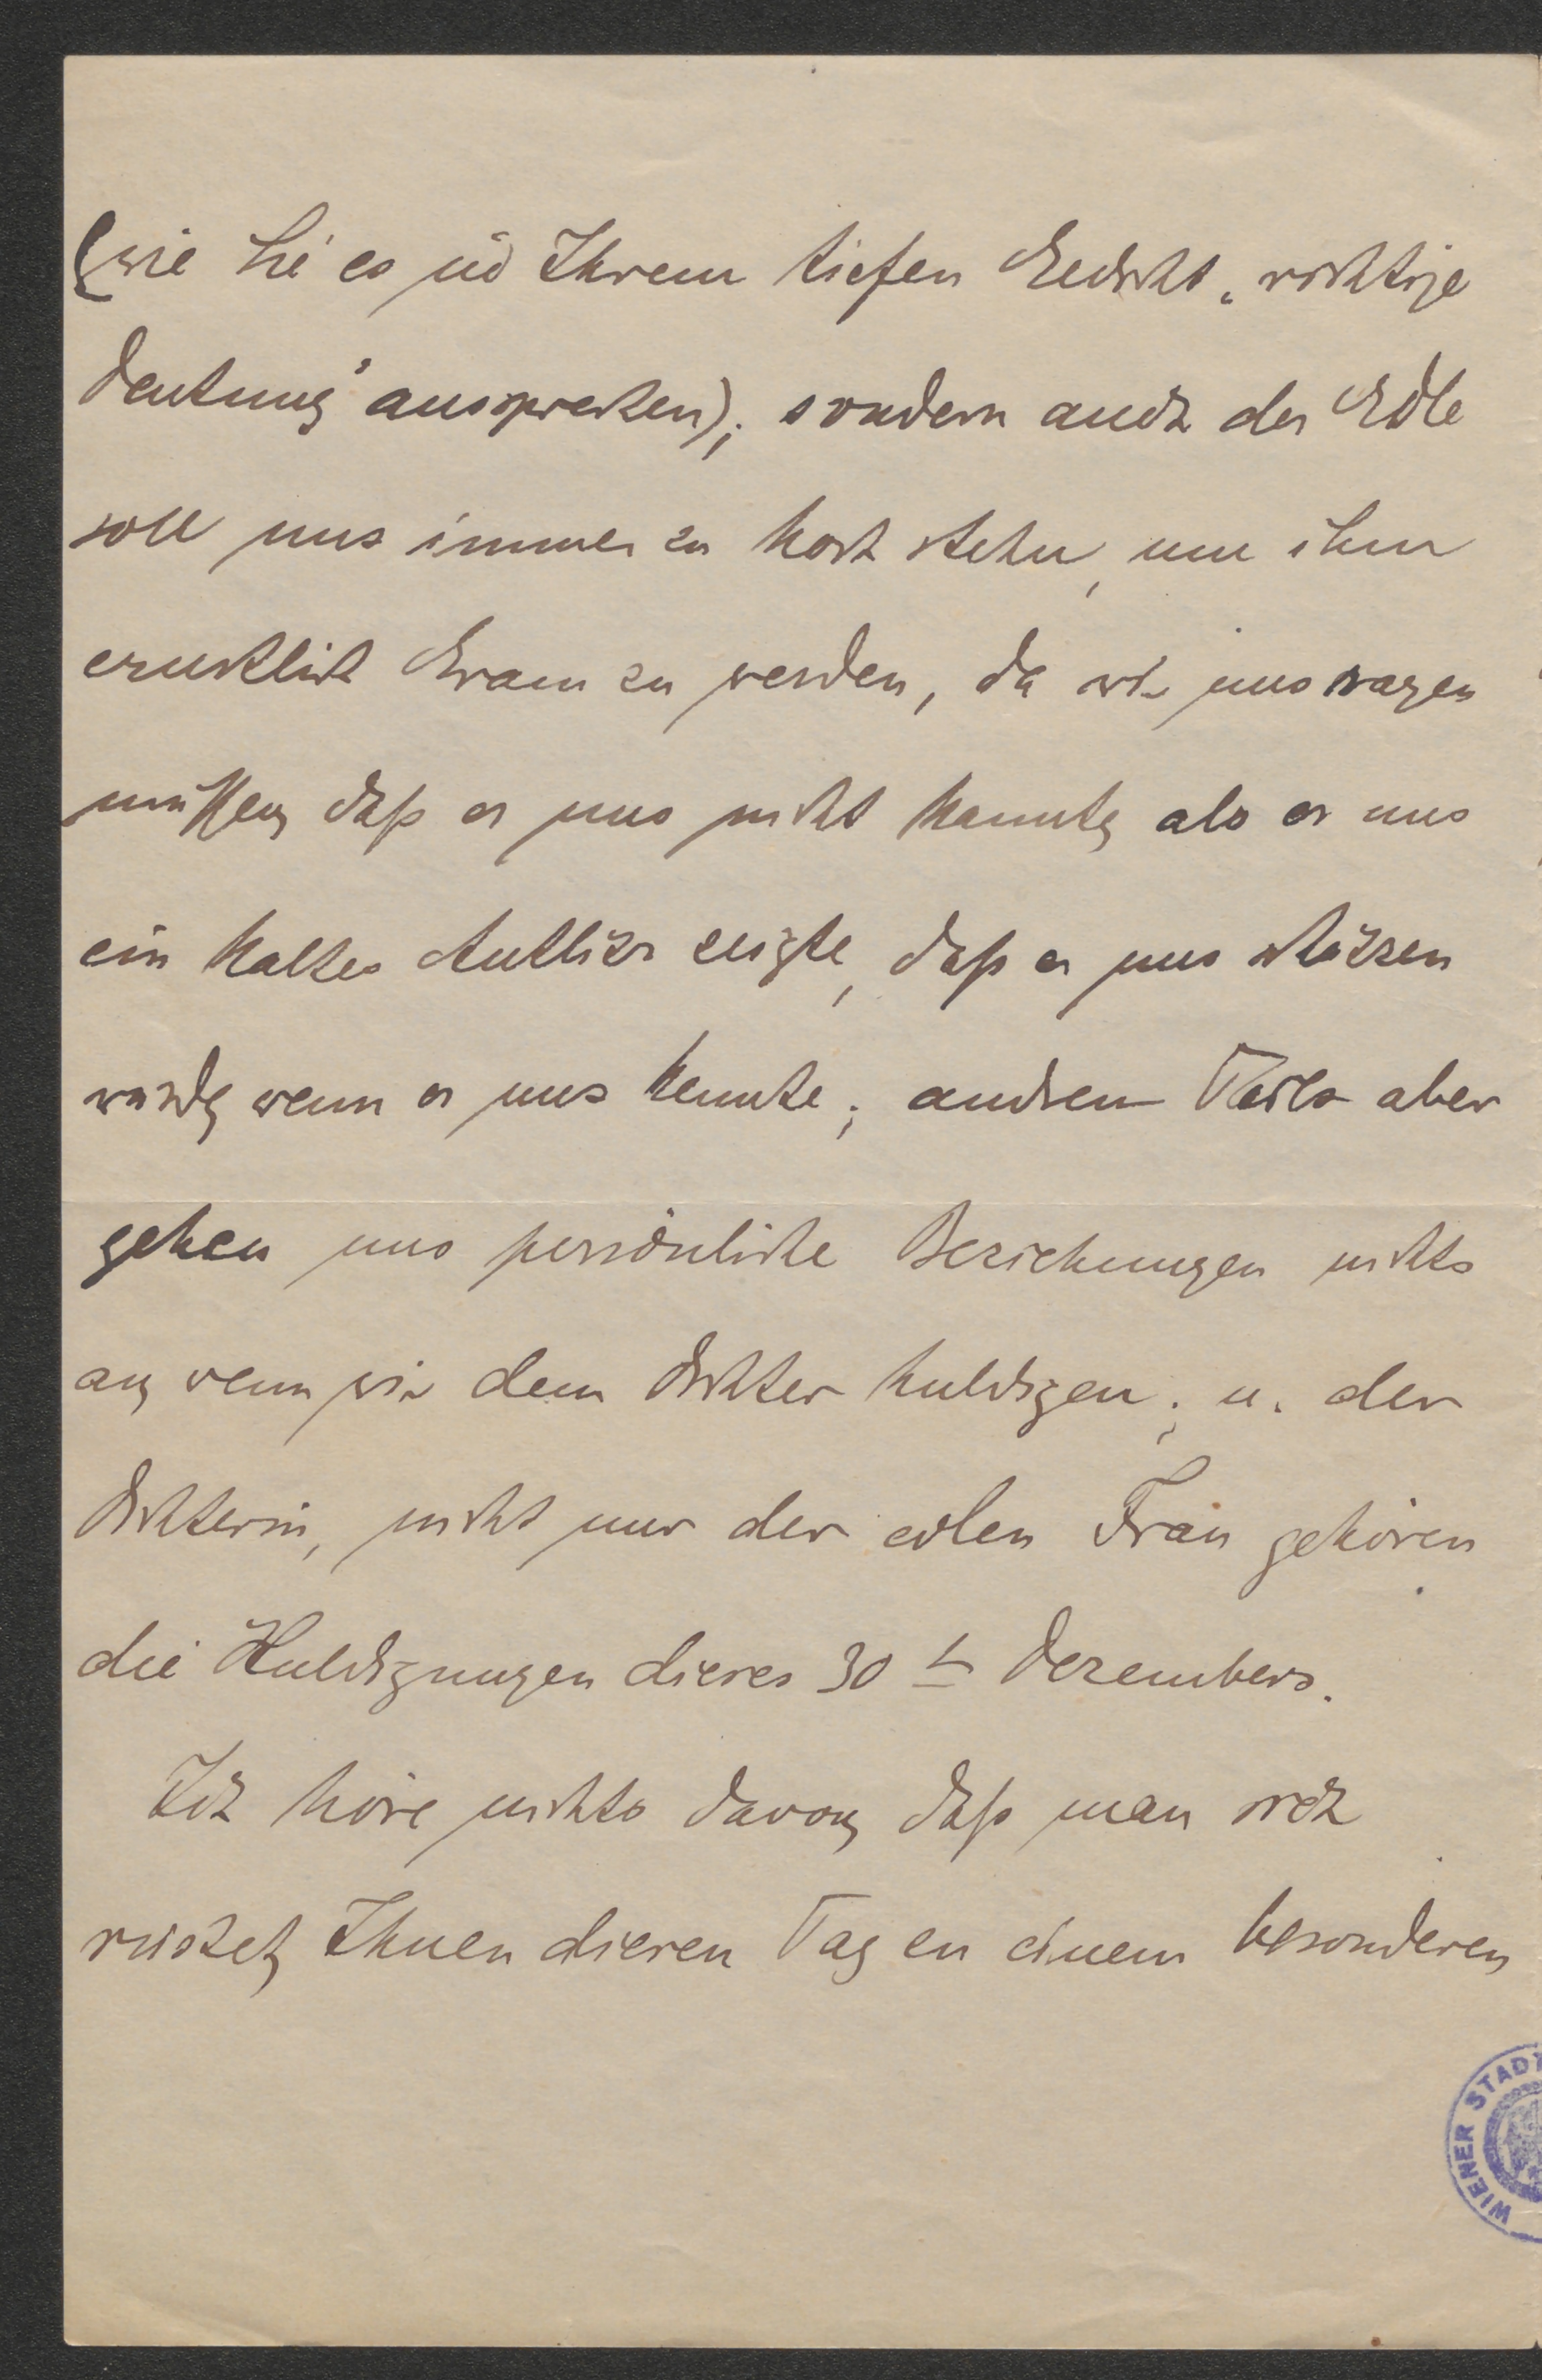 (wie Sie es in Ihrem tiefen Gedicht „richtige
Deutung" aussprechen); sondern auch der Edle
soll uns immer zu hoch stehn, um ihm
ernstlich Gram zu werden, da wir uns sagen
müssen, daß er uns nicht kannte, als er uns
ein kaltes Antlitz zeigte, daß er uns schätzen
würde, wenn er uns kennte; andern Teils aber
gehen uns persönliche Beziehungen nichts
an, wenn wir dem Dichter huldigen; u. der
Dichterin, nicht nur der edlen Frau gehören
die Huldigungen dieses 30 t. Dezembers.
Ich höre nichts davon, daß man sich
rüstet, Ihnen diesen Tag zu einem besonderen
WIENER STADT